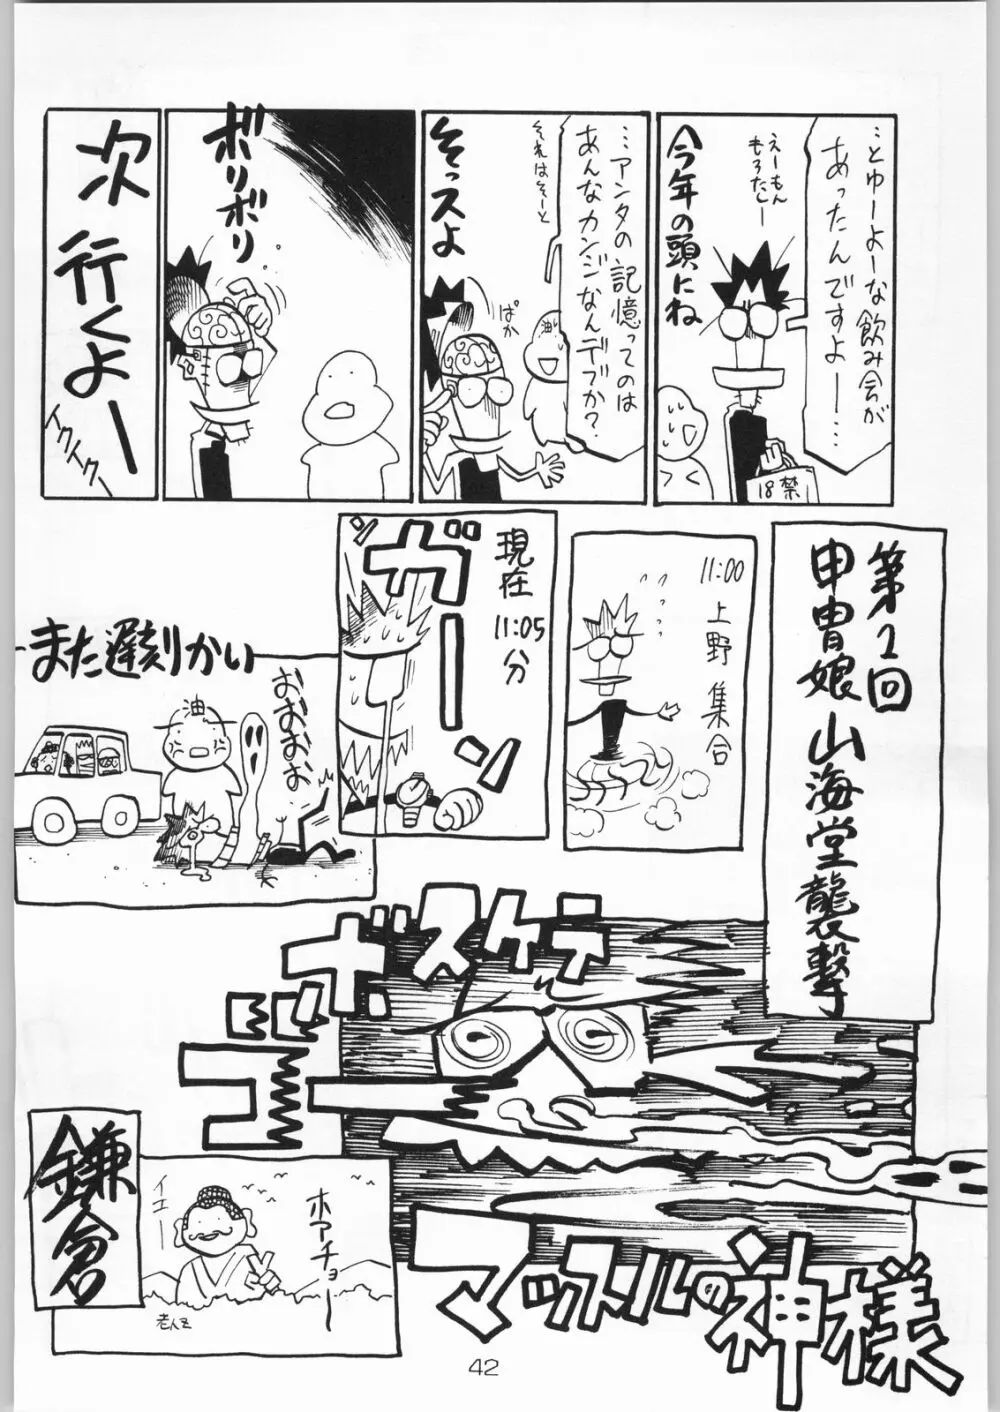 …とゆーよーな飲み会が
あったんですよー…
えーもん
もろたしー
今年の頭にね
18禁
…アンタの記憶ってのは
あんなカンジなんデブか?
それはそーと
そっスよ
ぱか
油
ボリボリ
次行くよー
イクイクー
第2回
甲冑娘山海堂襲撃
11:00
上野集合
現在
11:05分
ガーン
また遅刻かい
油
おおおお
ボスケテ
ゴー
マッスルの神様
鎌倉
イエー
ホアチョー
42